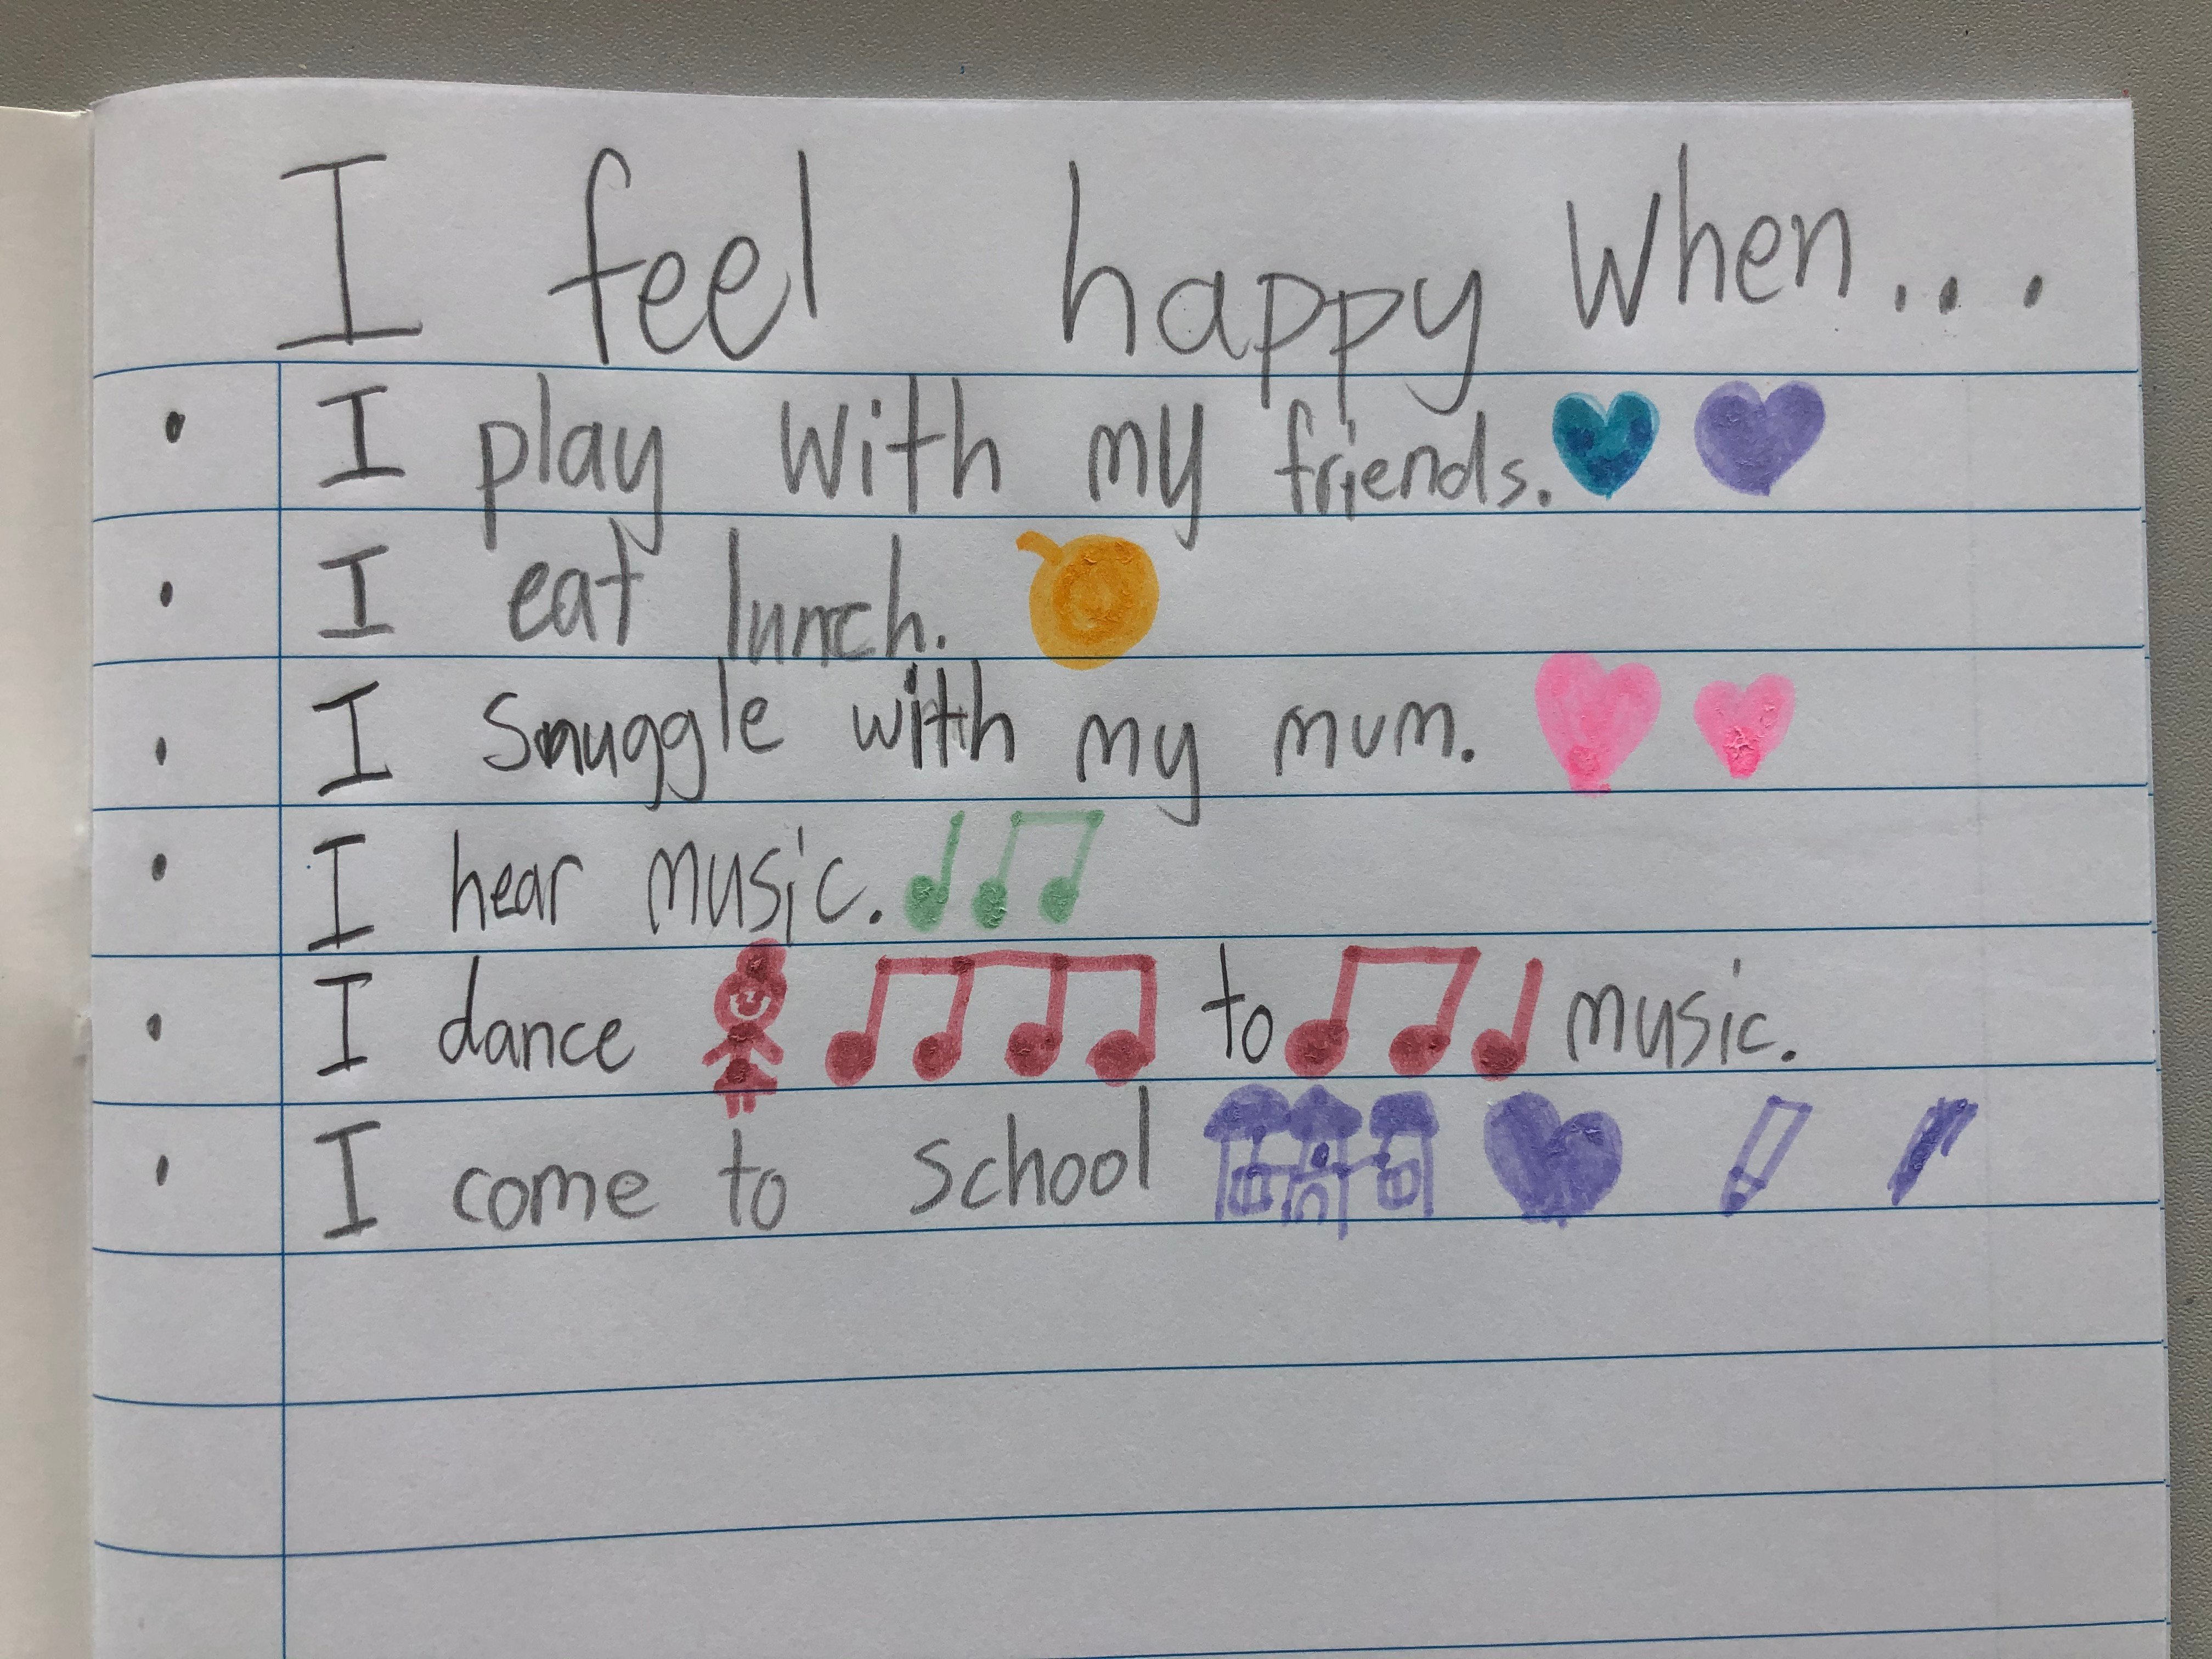 I feel happy when...
• I play with my friends.
• I eat lunch.
• I snuggle with my mum.
• I hear music.
• I dance to music.
• I come to school